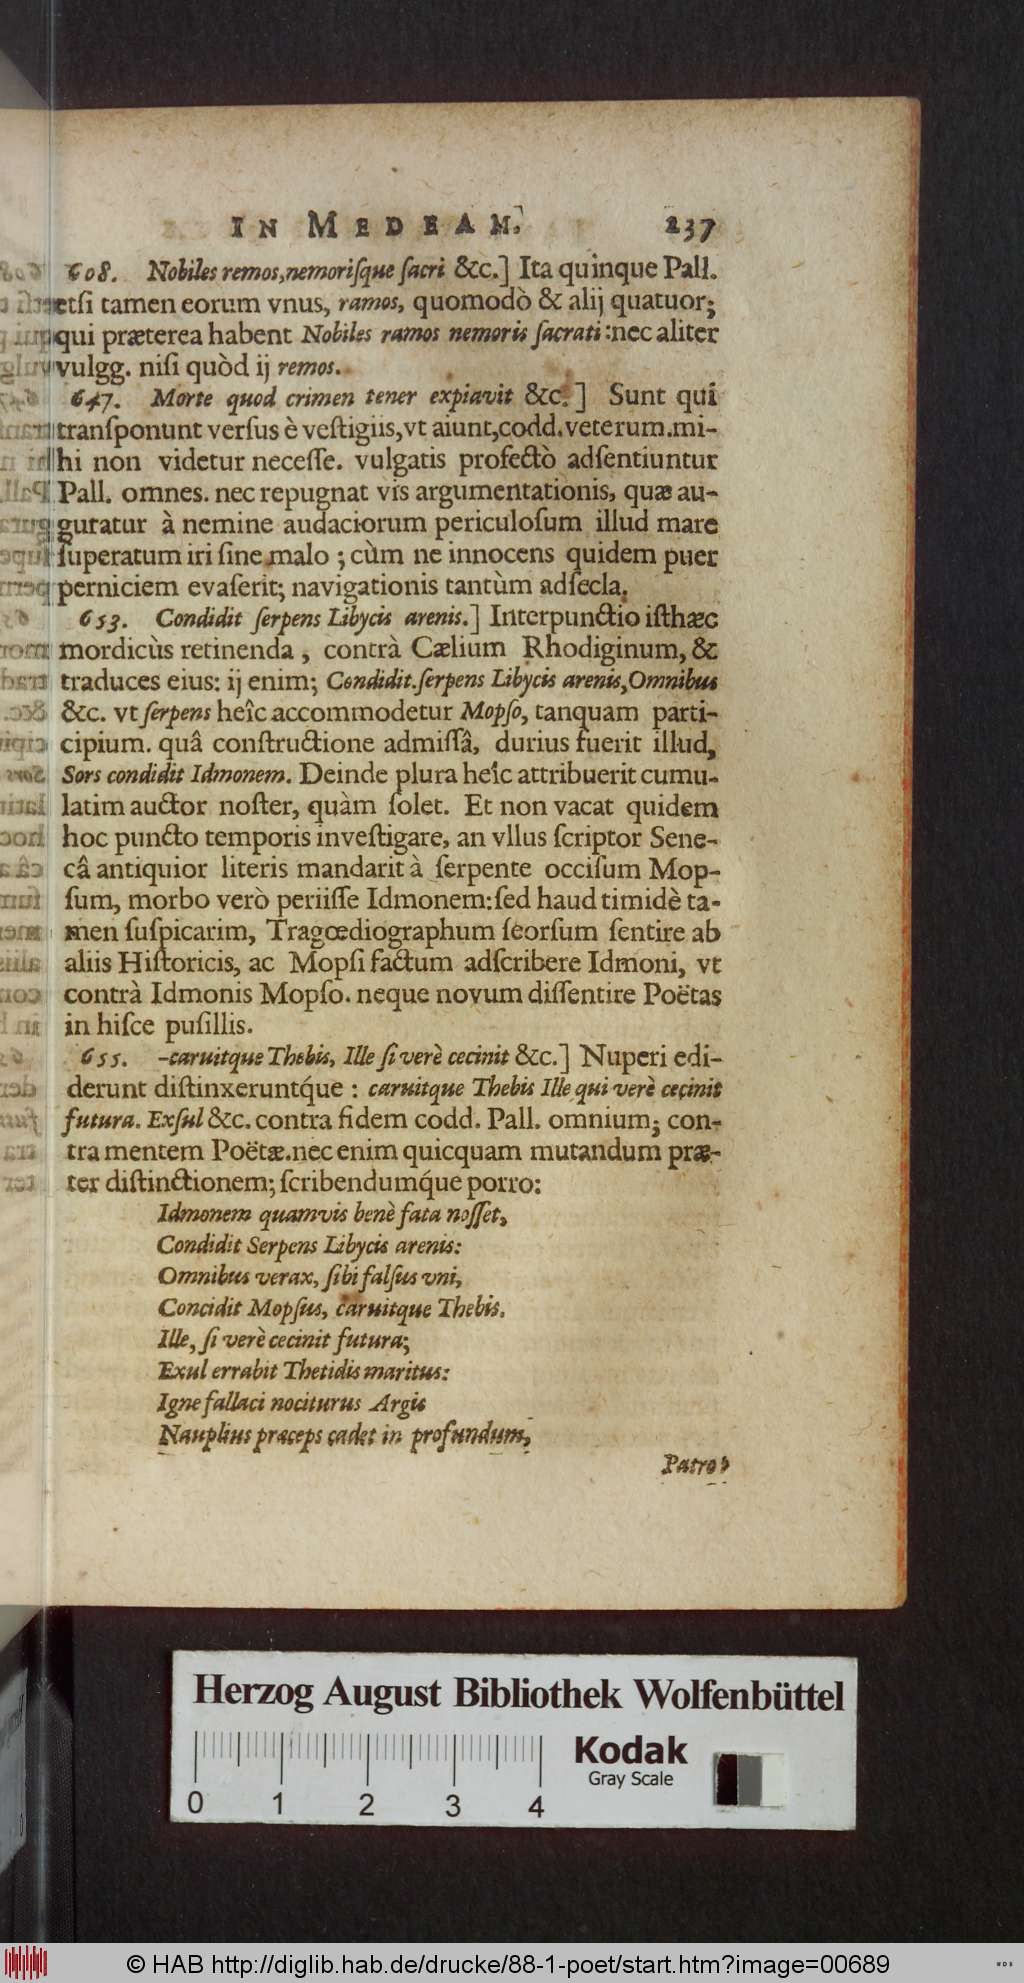 IN MEDEAM. 237
608. Nobiles remos, nemoriſque ſacri &c.] Ita quinque Pall.
etſi tamen eorum vnus, ramos, quomodò & alij quatuor;
qui præterea habent Nobiles ramos nemoris ſacrati: nec aliter
vulgg. niſi quòd ij remos.
647. Morte quod crimen tener expiavit &c.] Sunt qui
tranſponunt verſus è veſtigiis, vt aiunt, codd. veterum. mi-
hi non videtur neceſſe. vulgatis profectò adſentiuntur
Pall. omnes. nec repugnat vis argumentationis, quæ au-
guratur à nemine audaciorum periculoſum illud mare
ſuperatum iri ſine malo; cùm ne innocens quidem puer
perniciem evaſerit; navigationis tantùm adſecla.
653. Condidit ſerpens Libycis arenis.] Interpunctio iſthæc
mordicùs retinenda, contrà Cælium Rhodiginum, &
traduces eius: ij enim; Condidit. ſerpens Libycis arenis, Omnibus
&c. vt ſerpens heîc accommodetur Mopſo, tanquam parti-
cipium. quâ conſtructione admiſſâ, durius fuerit illud,
Sors condidit Idmonem. Deinde plura heîc attribuerit cumu-
latim auctor noſter, quàm ſolet. Et non vacat quidem
hoc puncto temporis inveſtigare, an vllus ſcriptor Sene-
câ antiquior literis mandarit à ſerpente occiſum Mop-
ſum, morbo verò periiſſe Idmonem: ſed haud timidè ta-
men ſuſpicarim, Tragœdiographum ſeorſum ſentire ab
aliis Hiſtoricis, ac Mopſi factum adſcribere Idmoni, vt
contrà Idmonis Mopſo. neque novum diſſentire Poëtas
in hiſce puſillis.
655. -caruitque Thebis, Ille ſi verè cecinit &c.] Nuperi edi-
derunt diſtinxeruntq́ue: caruitque Thebis Ille qui verè cecinit
futura. Exſul &c. contra fidem codd. Pall. omnium; con-
tra mentem Poëtæ. nec enim quicquam mutandum præ-
ter diſtinctionem; ſcribendumq́ue porro:
Idmonem quamvis benè fata noſſet,
Condidit Serpens Libycis arenis:
Omnibus verax, ſibi falſus vni,
Concidit Mopſus, caruitque Thebis.
Ille, ſi verè cecinit futura;
Exul errabit Thetidis maritus:
Igne fallaci nociturus Argis
Nauplius præceps cadet in profundum,
Patro-
Herzog August Bibliothek Wolfenbüttel
Kodak
Gray Scale
0 1 2 3 4
© HAB http://diglib.hab.de/drucke/88-1-poet/start.htm?image=00689